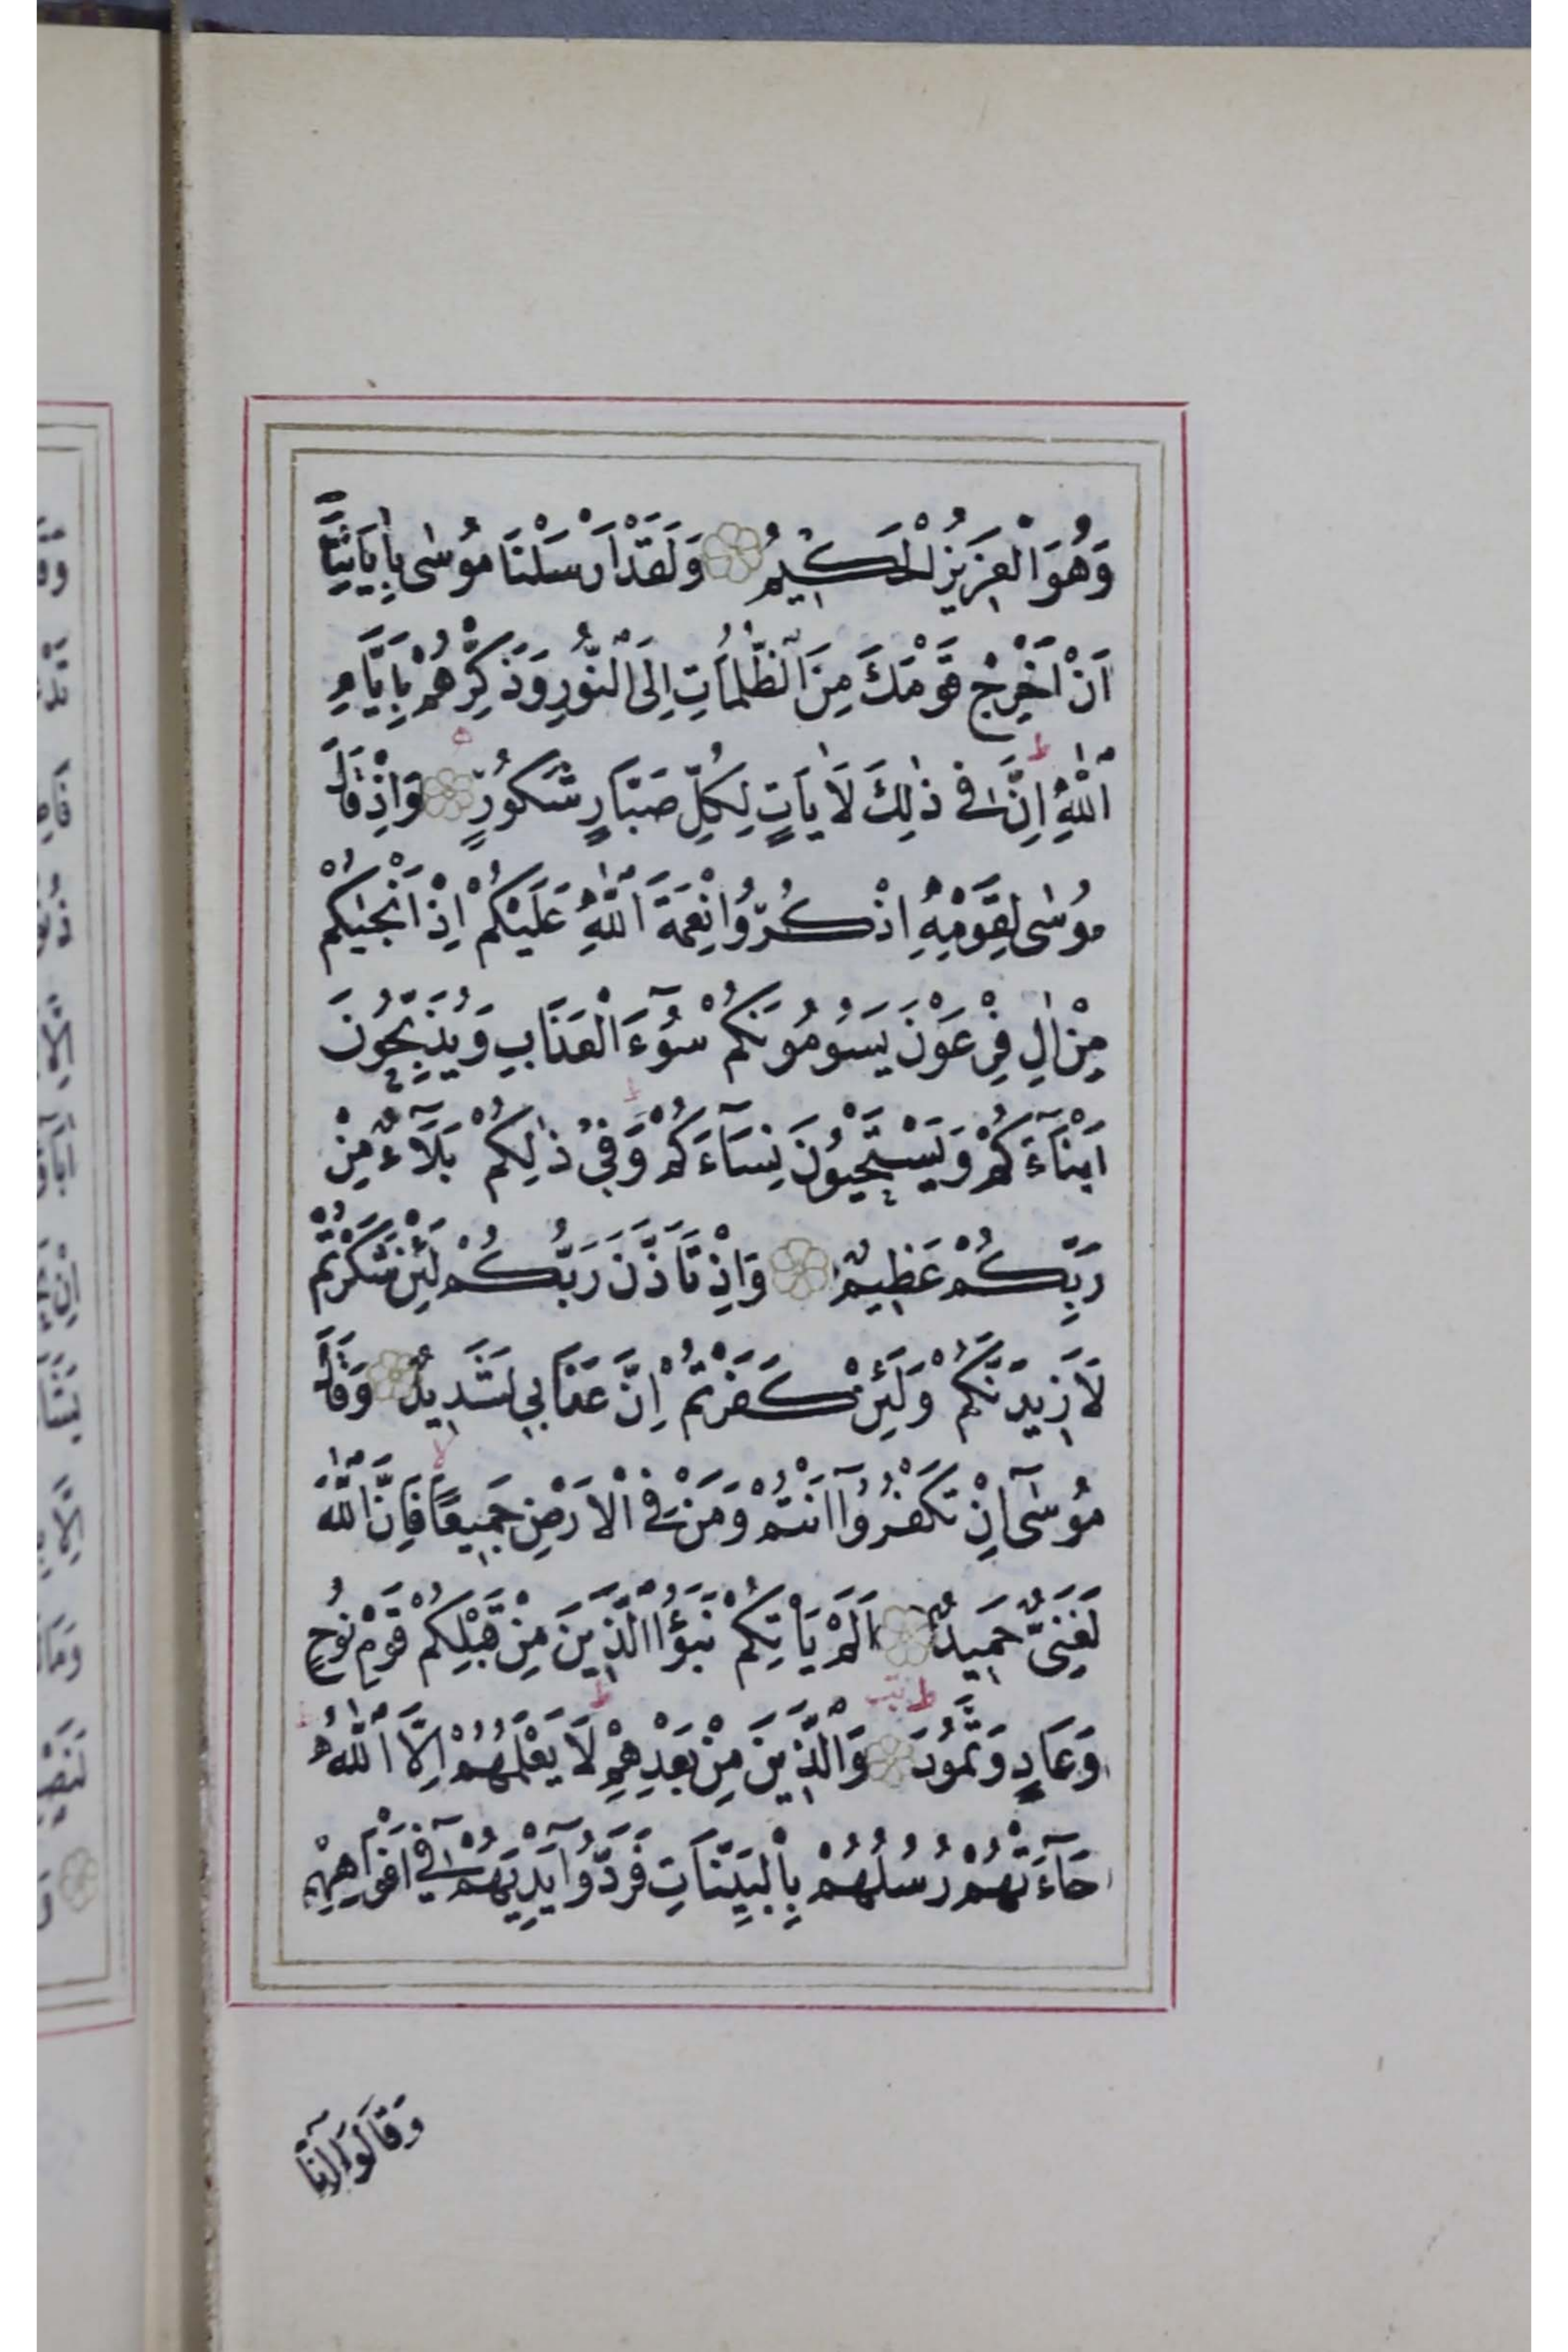 وَهُوَ الْعَزِيزُ الْحَكِيمُ وَلَقَدْ اَرْسَلْنَا مُوسٰى بِاٰيَاتِنَٓا
اَنْ اَخْرِجْ قَوْمَكَ مِنَ الظُّلُمَاتِ اِلَى النُّورِ وَذَكِّرْهُمْ بِاَيَّامِ
اللّٰهِ ط اِنَّ فٖى ذٰلِكَ لَاٰيَاتٍ لِكُلِّ صَبَّارٍ شَكُورٍ ه وَاِذْ قَالَ
مُوسٰى لِقَوْمِهِ اذْكُرُوا نِعْمَةَ اللّٰهِ عَلَيْكُمْ اِذْ اَنْجٰيكُمْ
مِنْ اٰلِ فِرْعَوْنَ يَسُومُونَكُمْ سُٓوءَ الْعَذَابِ وَيُذَبِّحُونَ
اَبْنَٓاءَكُمْ وَيَسْتَحْيُونَ نِسَٓاءَكُمْ ط وَفٖى ذٰلِكُمْ بَلَٓاءٌ مِنْ
رَبِّكُمْ عَظٖيمٌ وَاِذْ تَاَذَّنَ رَبُّكُمْ لَئِنْ شَكَرْتُمْ
لَاَزٖيدَنَّكُمْ وَلَئِنْ كَفَرْتُمْ اِنَّ عَذَابٖى لَشَدٖيدٌ وَقَالَ
مُوسٰٓى اِنْ تَكْفُرُٓوا اَنْتُمْ وَمَنْ فِى الْاَرْضِ جَمٖيعًا لا فَاِنَّ اللّٰهَ
لَغَنِىٌّ حَمٖيدٌ اَلَمْ يَاْتِكُمْ نَبَؤُا الَّذٖينَ مِنْ قَبْلِكُمْ قَوْمِ نُوحٍ
وَعَادٍ وَثَمُودَ ط وَالَّذٖينَ مِنْ بَعْدِهِمْ ط لَا يَعْلَمُهُمْ اِلَّا اللّٰهُ ط
جَٓاءَتْهُمْ رُسُلُهُمْ بِالْبَيِّنَاتِ فَرَدُّٓوا اَيْدِيَهُمْ فٖٓى اَفْوَاهِهِمْ
وَقَالُٓوا اِنَّا